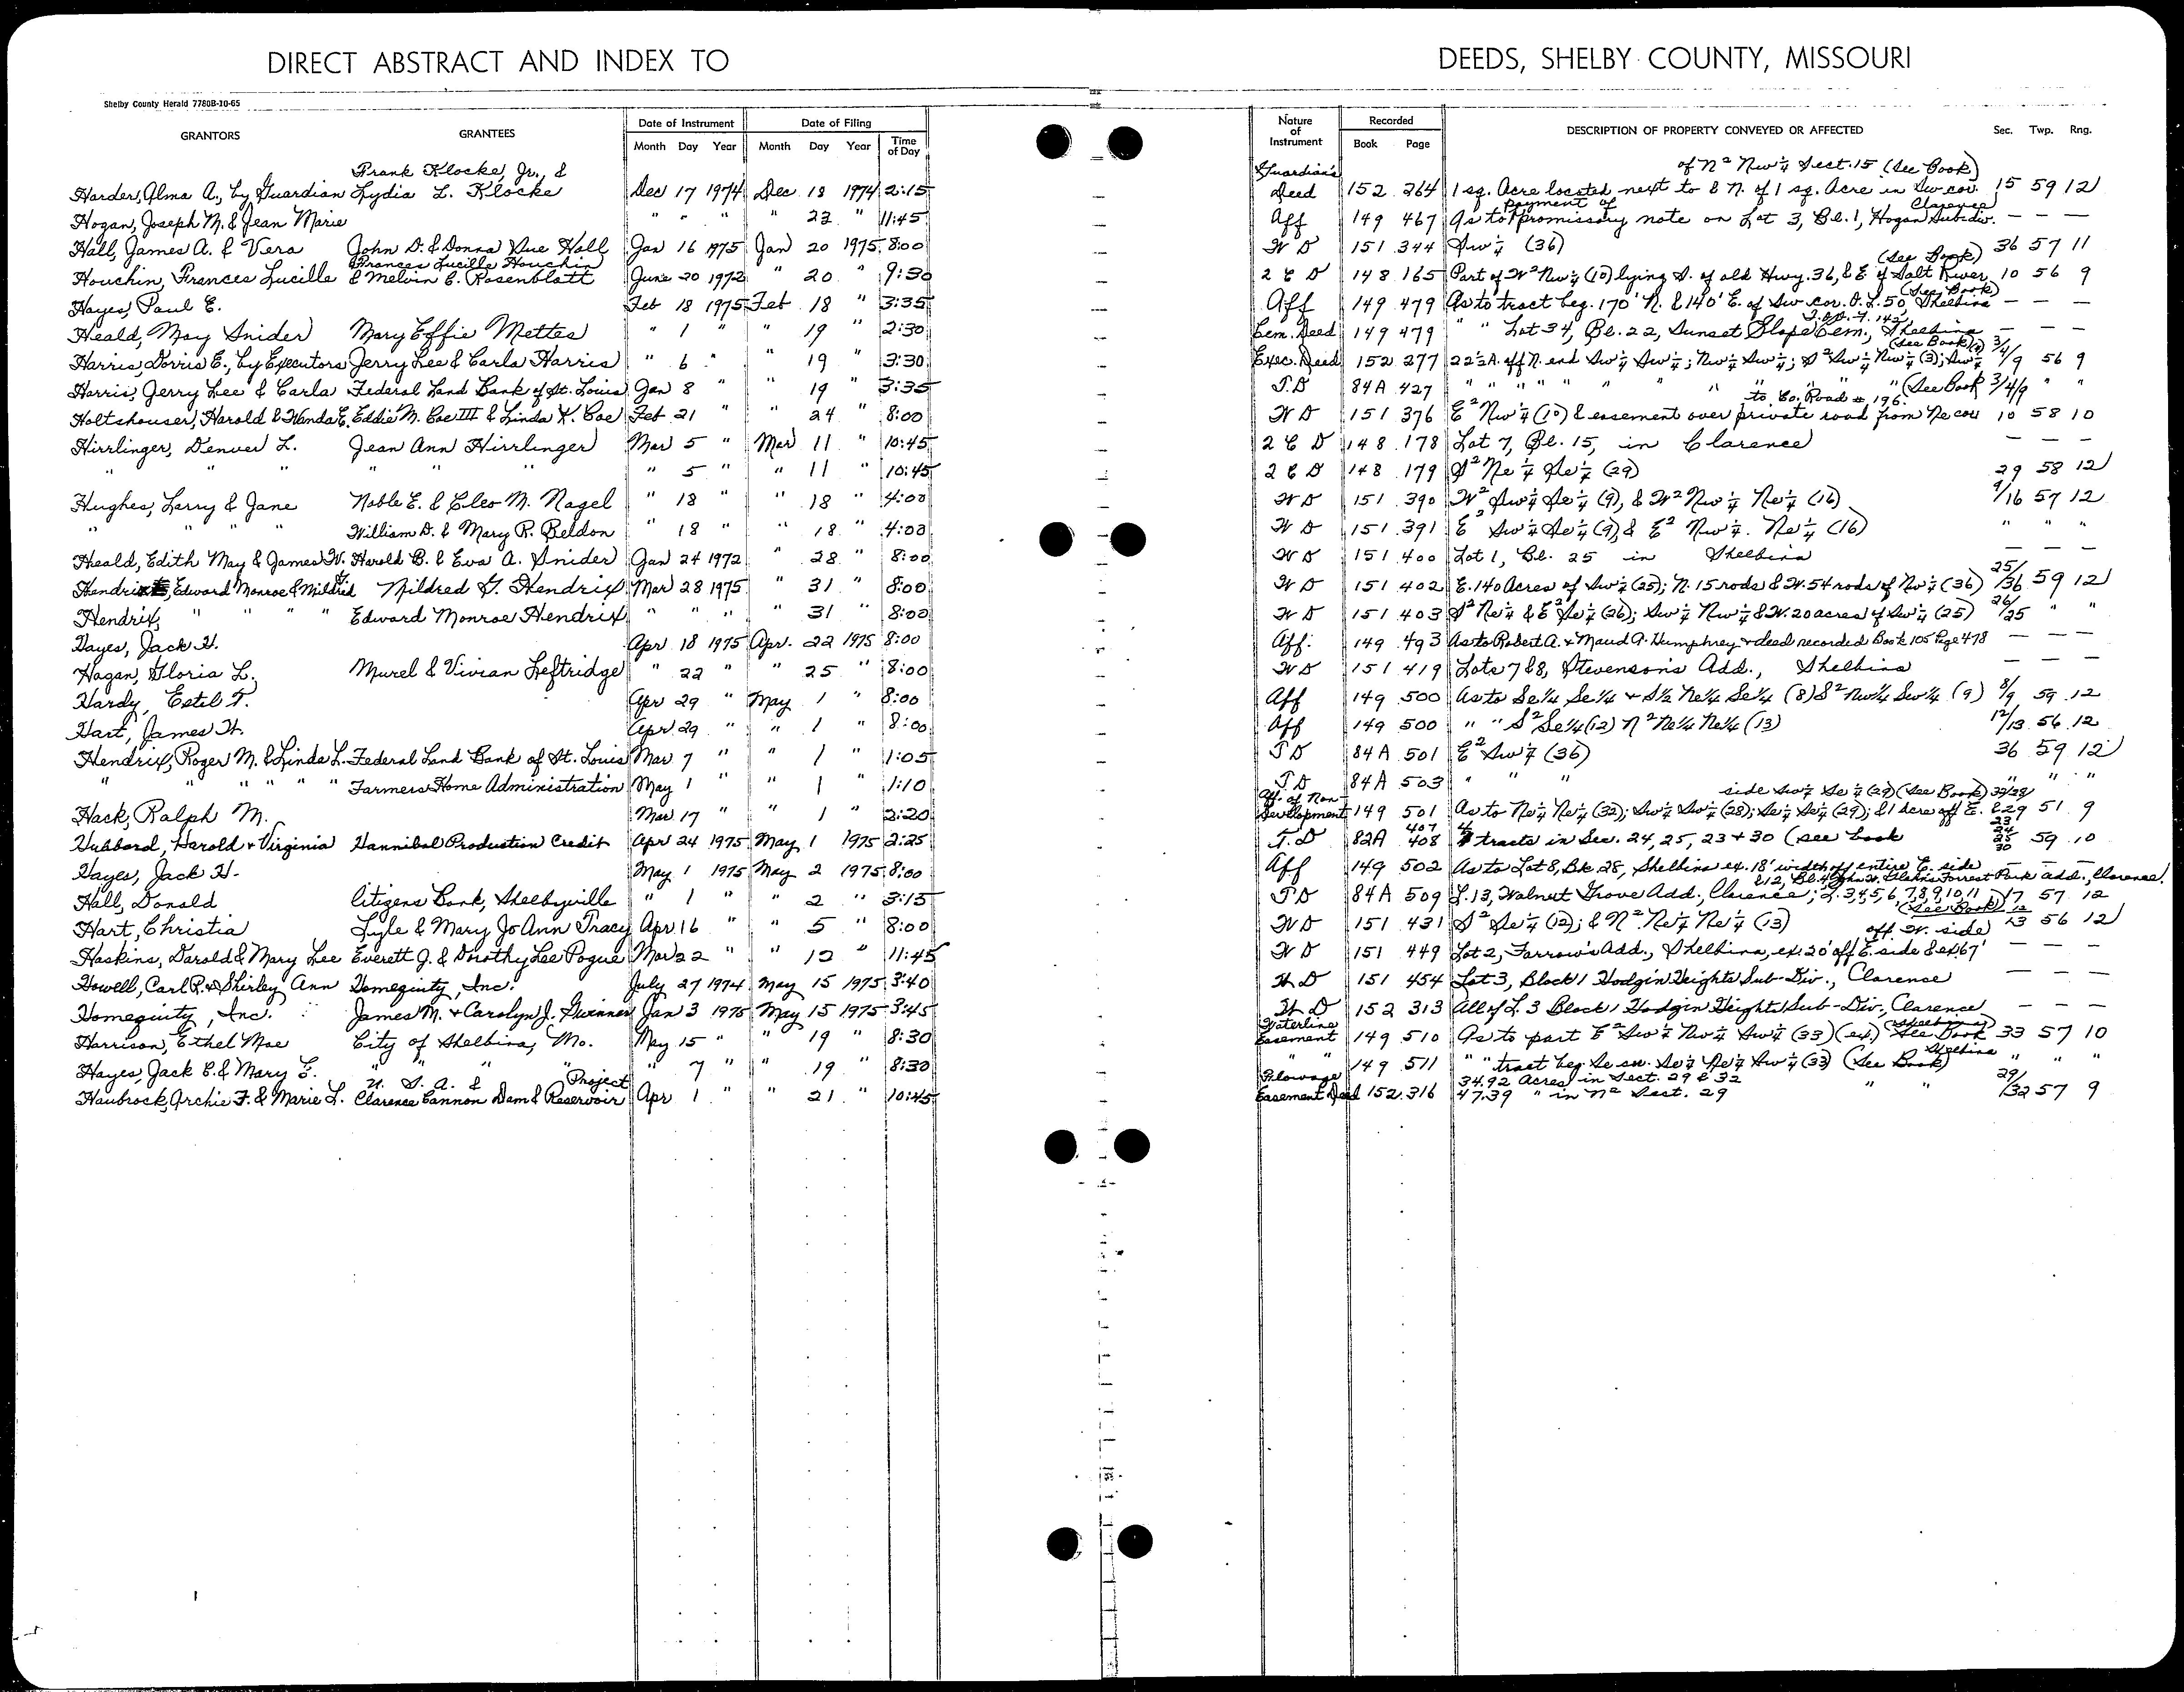 DIRECT ABSTRACT AND INDEX TO DEEDS, SHELBY COUNTY, MISSOURI
Shelby County Herald 7780B-10-65
GRANTORS GRANTEES Date of Instrument Date of Filing Nature of Instrument Recorded DESCRIPTION OF PROPERTY CONVEYED OR AFFECTED Sec. Twp. Rng.
Month Day Year Month Day Year Time of Day Book Page
Frank Klocke, Jr., & Guardian's of N² Nw¼ Sect. 15 (See Book)
Harder, Alma A., by Guardian Lydia L. Klocke Dec 17 1974 Dec 18 1974 2:15 Deed 152 264 1 sq. Acre located next to & N. of 1 sq. Acre in Sw cor. 15 59 12
payment of Clarence
Hogan, Joseph M. & Jean Marie " " " " 23 " 11:45 Aff 149 467 As to promissory note on Lot 3, Bl. 1, Hogan Subdiv. — — —
Hall, James A. & Vera John D. & Donna Sue Hall Jan 16 1975 Jan 20 1975 8:00 W D 151 344 Sw¼ (36) 36 57 11
Frances Lucille Houchin (See Book)
Houchin, Frances Lucille & Melvin E. Rosenblatt June 20 1972 " 20 " 9:30 2 C D 148 165 Part of W² Nw¼ (10) lying S. of old Hwy. 36, & E. of Salt River 10 56 9
(See Book)
Hayes, Paul E. Feb 18 1975 Feb 18 " 3:35 Aff 149 479 As to tract beg. 170' N. & 140' E. of Sw cor. O.L. 50 Shelbina — — —
Heald, May Snider Mary Effie Mettes " 1 " " 19 " 2:30 Cem. Deed 149 479 " " Lot 34, Bl. 22, Sunset Slope Cem., Shelbina — — —
(See Book)
Harris, Dorris E., by Executors Jerry Lee & Carla Harris " 6 " " 19 " 3:30 Exec. Deed 152 277 22½A. off N. end Sw¼ Sw¼; Nw¼ Sw¼; S² Sw¼ Nw¼ (3); Sw¼ 3/4/9 56 9
Harris, Jerry Lee & Carla Federal Land Bank of St. Louis Jan 8 " " 19 " 3:35 T D 84A 427 " " " " " " " " " (See Book 3/4/9 " "
to Co. Road # 196.
Holtshouser, Harold & Wanda E. Eddie M. Coe III & Linda K. Coe Feb 21 " 24 " 8:00 W D 151 376 E² Nw¼ (10) & easement over private road from Ne cor 10 58 10
Hirrlinger, Denver L. Jean Ann Hirrlinger Mar 5 " Mar 11 " 10:45 2 C D 148 178 Lot 7, Bl. 15, in Clarence — — —
" " " " " " " 5 " " 11 " 10:45 2 C D 148 179 S² Ne¼ Se¼ (29) 29 58 12
Hughes, Larry & Jane Noble E. & Cleo M. Nagel " 18 " " 18 " 4:00 W D 151 390 W² Sw¼ Se¼ (9), & W² Nw¼ Ne¼ (16) 9/16 57 12
" " " " William D. & Mary R. Beldon " 18 " " 18 " 4:00 W D 151 391 E² Sw¼ Se¼ (9) & E² Nw¼ Ne¼ (16) " " "
Heald, Edith May & James W. Harold B. & Eva A. Snider Jan 24 1972 " 28 " 8:00 W D 151 400 Lot 1, Bl. 25 in Shelbina — — —
Hendrix, Edward Monroe & Mildred G. Mildred G. Hendrix Mar 28 1975 " 31 " 8:00 W D 151 402 E. 140 Acres of Sw¼ (25); N. 15 rods & W. 54 rods of Nw¼ (36) 25/36 59 12
Hendrix, " " " " Edward Monroe Hendrix " " " " 31 " 8:00 W D 151 403 S² Ne¼ & E² Se¼ (26); Sw¼ Nw¼ & W. 20 acres of Sw¼ (25) 26/25 " "
Hayes, Jack H. Apr 18 1975 Apr. 22 1975 8:00 Aff. 149 493 As to Robert A. & Maud A. Humphrey & deed recorded Book 105 Page 478 — — —
Hagan, Gloria L. Murel & Vivian Leftridge " 22 " " 25 " 8:00 W D 151 419 Lots 7 & 8, Stevenson's Add., Shelbina — — —
Hardy, Estil T. Apr 29 " May 1 " 8:00 Aff 149 500 As to Se¼ Se¼ & S½ Ne¼ Se¼ (8) S² Nw¼ Sw¼ (9) 8/9 59 12
Hart, James H. Apr 29 " " 1 " 8:00 Aff 149 500 " " S² Se¼ (12) N² Ne¼ Ne¼ (13) 12/13 56 12
Hendrix, Roger M. & Linda L. Federal Land Bank of St. Louis Mar 7 " " 1 " 1:05 T D 84A 501 E² Sw¼ (36) 36 59 12
" " " " " Farmers Home Administration May 1 " " 1 " 1:10 T D 84A 503 " " " " " "
Aff. of Non side Sw¼ Se¼ (29) (See Book)
Hack, Ralph M. Mar 17 " " 1 " 2:20 Development 149 501 As to Ne¼ Ne¼ (32); Sw¼ Sw¼ (28); Se¼ Se¼ (29); & 1 acre off E. & 29 51 9
Hubbard, Harold & Virginia Hannibal Production Credit Apr 24 1975 May 1 1975 2:25 T. D 82A 407 408 tracts in Sec. 24, 25, 23 + 30 (see book 23 24 25 30 59 10
Hayes, Jack H. May 1 1975 May 2 1975 8:00 Aff 149 502 As to Lot 8, Bk. 28, Shelbina ex. 18' width off entire E. side — — —
&12, Bl. 4 John W. Forrest Park add., Clarence.
Hall, Donald Citizens Bank, Shelbyville " 1 " " 2 " 3:15 T D 84A 509 L. 13, Walnut Grove Add., Clarence; L. 3,4,5,6,7,8,9,10,11 17 57 12
(See Book)
Hart, Christia Lyle & Mary Jo Ann Tracy Apr 16 " " 5 " 8:00 W D 151 431 S² Se¼ (12); & N² Ne¼ Ne¼ (13) 12/13 56 12
off W. side
Haskins, Darold & Mary Lee Everett J. & Dorothy Lee Pogue Mar 22 " " 12 " 11:45 W D 151 449 Lot 2, Farrow's Add., Shelbina, ex. 20' off E. side & ex. 67' — — —
Howell, Carl R. & Shirley Ann Homequity, Inc. July 27 1974 May 15 1975 3:40 W D 151 454 Lot 3, Block 1 Hodgin Heights Sub-Div., Clarence — — —
Homequity, Inc. James M. & Carolyn J. Gwinner Jan 3 1975 May 15 1975 3:45 W D 152 313 All of L. 3 Block 1 Hodgin Heights Sub-Div., Clarence — — —
Waterline Shelbina
Harrison, Ethel Mae City of Shelbina, Mo. May 15 " " 19 " 8:30 Easement 149 510 As to part E² Sw¼ Nw¼ Sw¼ (33) (ex.) See Book 33 57 10
Shelbina
Hayes, Jack C. & Mary E. " " " " 7 " " 19 " 8:30 " " 149 511 " " tract beg. Se cor. Se¼ Ne¼ Sw¼ (33) (See Book) " " "
U. S. A. & Project Flowage 34.92 Acres in Sect. 29 & 32
Haubrock, Archie F. & Marie L. Clarence Cannon Dam & Reservoir Apr 1 " " 21 " 10:45 Easement Deed 152 316 47.39 " in N² Sect. 29 " " 29/32 57 9